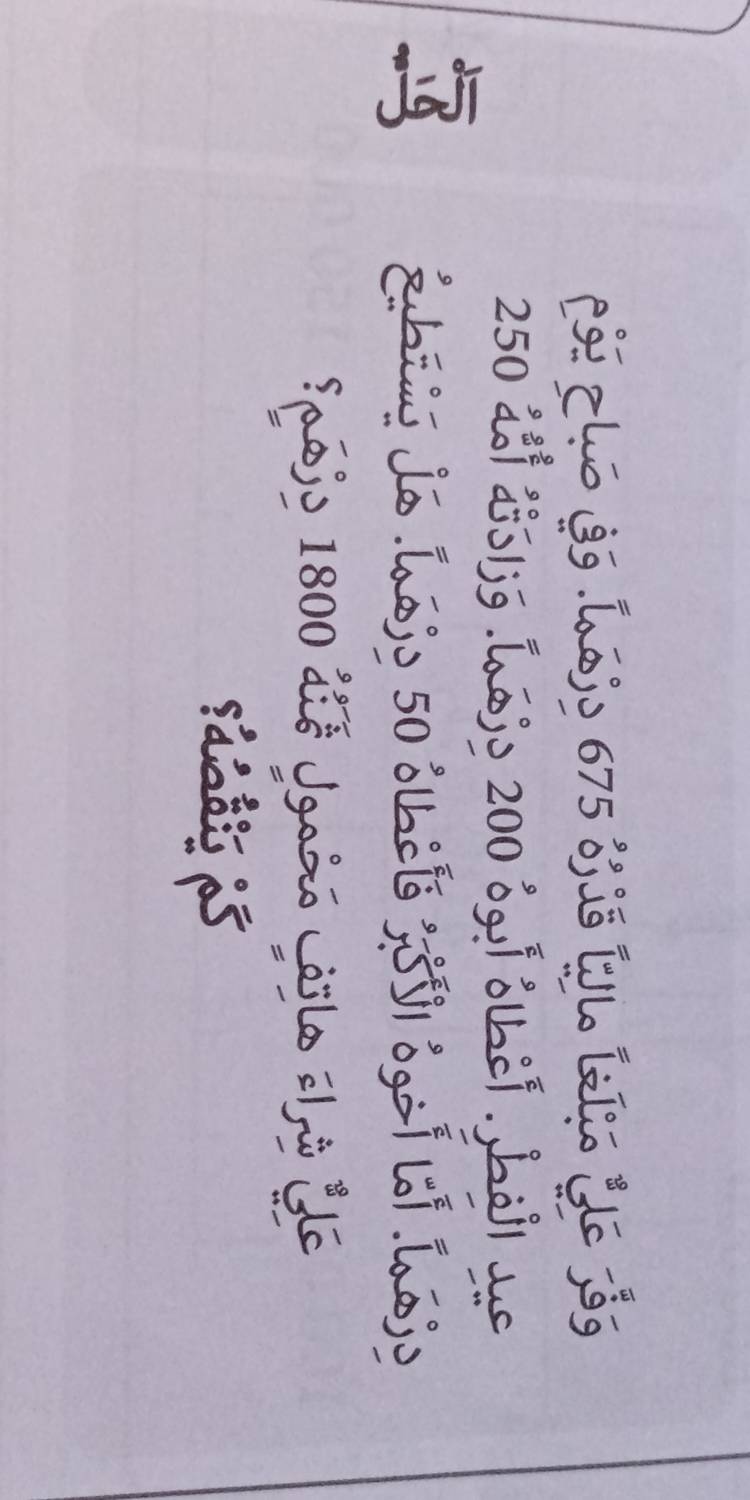 وَفَّرَ عَلِيٌّ مَبْلَغاً مالِيّاً قَدْرُهُ 675 دِرْهَماً. وَفِي صَباحِ يَوْمِ
عيدِ الْفِطْرِ. أَعْطاهُ أَبوهُ 200 دِرْهَماً. وَزادَتْهُ أُمُّهُ 250
دِرْهَماً. أَمّا أَخوهُ الْأَكْبَرُ فَأَعْطاهُ 50 دِرْهَماً. هَلْ يَسْتَطيعُ
عَلِيٌّ شِراءَ هاتِفٍ مَحْمولٍ ثَمَنُهُ 1800 دِرْهَمٍ؟
كَمْ يَنْقُصُهُ؟
اَلْحَلُّ